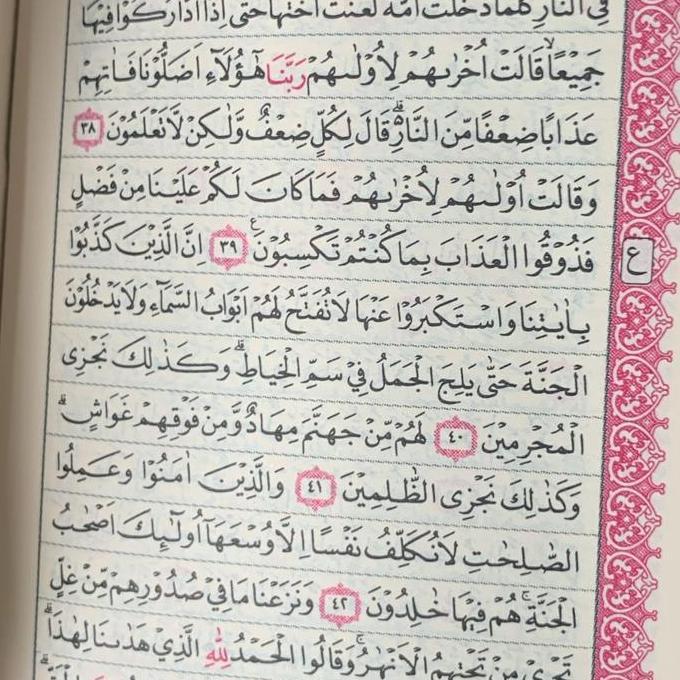 فِي النَّارِ كُلَّمَا دَخَلَتْ اُمَّةٌ لَعَنَتْ اُخْتَهَا حَتّٰى اِذَا ادَّارَكُوْا فِيْهَا
جَمِيْعًاۙ قَالَتْ اُخْرٰىهُمْ لِاُوْلٰىهُمْ رَبَّنَا هٰٓؤُلَاۤءِ اَضَلُّوْنَا فَاٰتِهِمْ
عَذَابًا ضِعْفًا مِّنَ النَّارِ ۗقَالَ لِكُلٍّ ضِعْفٌ وَّلٰكِنْ لَّا تَعْلَمُوْنَ ٣٨
وَقَالَتْ اُوْلٰىهُمْ لِاُخْرٰىهُمْ فَمَا كَانَ لَكُمْ عَلَيْنَا مِنْ فَضْلٍ
فَذُوْقُوا الْعَذَابَ بِمَا كُنْتُمْ تَكْسِبُوْنَ ࣖ ٣٩ اِنَّ الَّذِيْنَ كَذَّبُوْا
ع
بِاٰيٰتِنَا وَاسْتَكْبَرُوْا عَنْهَا لَا تُفَتَّحُ لَهُمْ اَبْوَابُ السَّمَاۤءِ وَلَا يَدْخُلُوْنَ
الْجَنَّةَ حَتّٰى يَلِجَ الْجَمَلُ فِيْ سَمِّ الْخِيَاطِ ۗ وَكَذٰلِكَ نَجْزِى
الْمُجْرِمِيْنَ ٤٠ لَهُمْ مِّنْ جَهَنَّمَ مِهَادٌ وَّمِنْ فَوْقِهِمْ غَوَاشٍ ۗ
وَكَذٰلِكَ نَجْزِى الظّٰلِمِيْنَ ٤١ وَالَّذِيْنَ اٰمَنُوْا وَعَمِلُوا
الصّٰلِحٰتِ لَا نُكَلِّفُ نَفْسًا اِلَّا وُسْعَهَآ اُولٰۤىِٕكَ اَصْحٰبُ
الْجَنَّةِۚ هُمْ فِيْهَا خٰلِدُوْنَ ٤٢ وَنَزَعْنَا مَا فِيْ صُدُوْرِهِمْ مِّنْ غِلٍّ
تَجْرِيْ مِنْ تَحْتِهِمُ الْاَنْهٰرُۚ وَقَالُوا الْحَمْدُ لِلّٰهِ الَّذِيْ هَدٰىنَا لِهٰذَاۗ